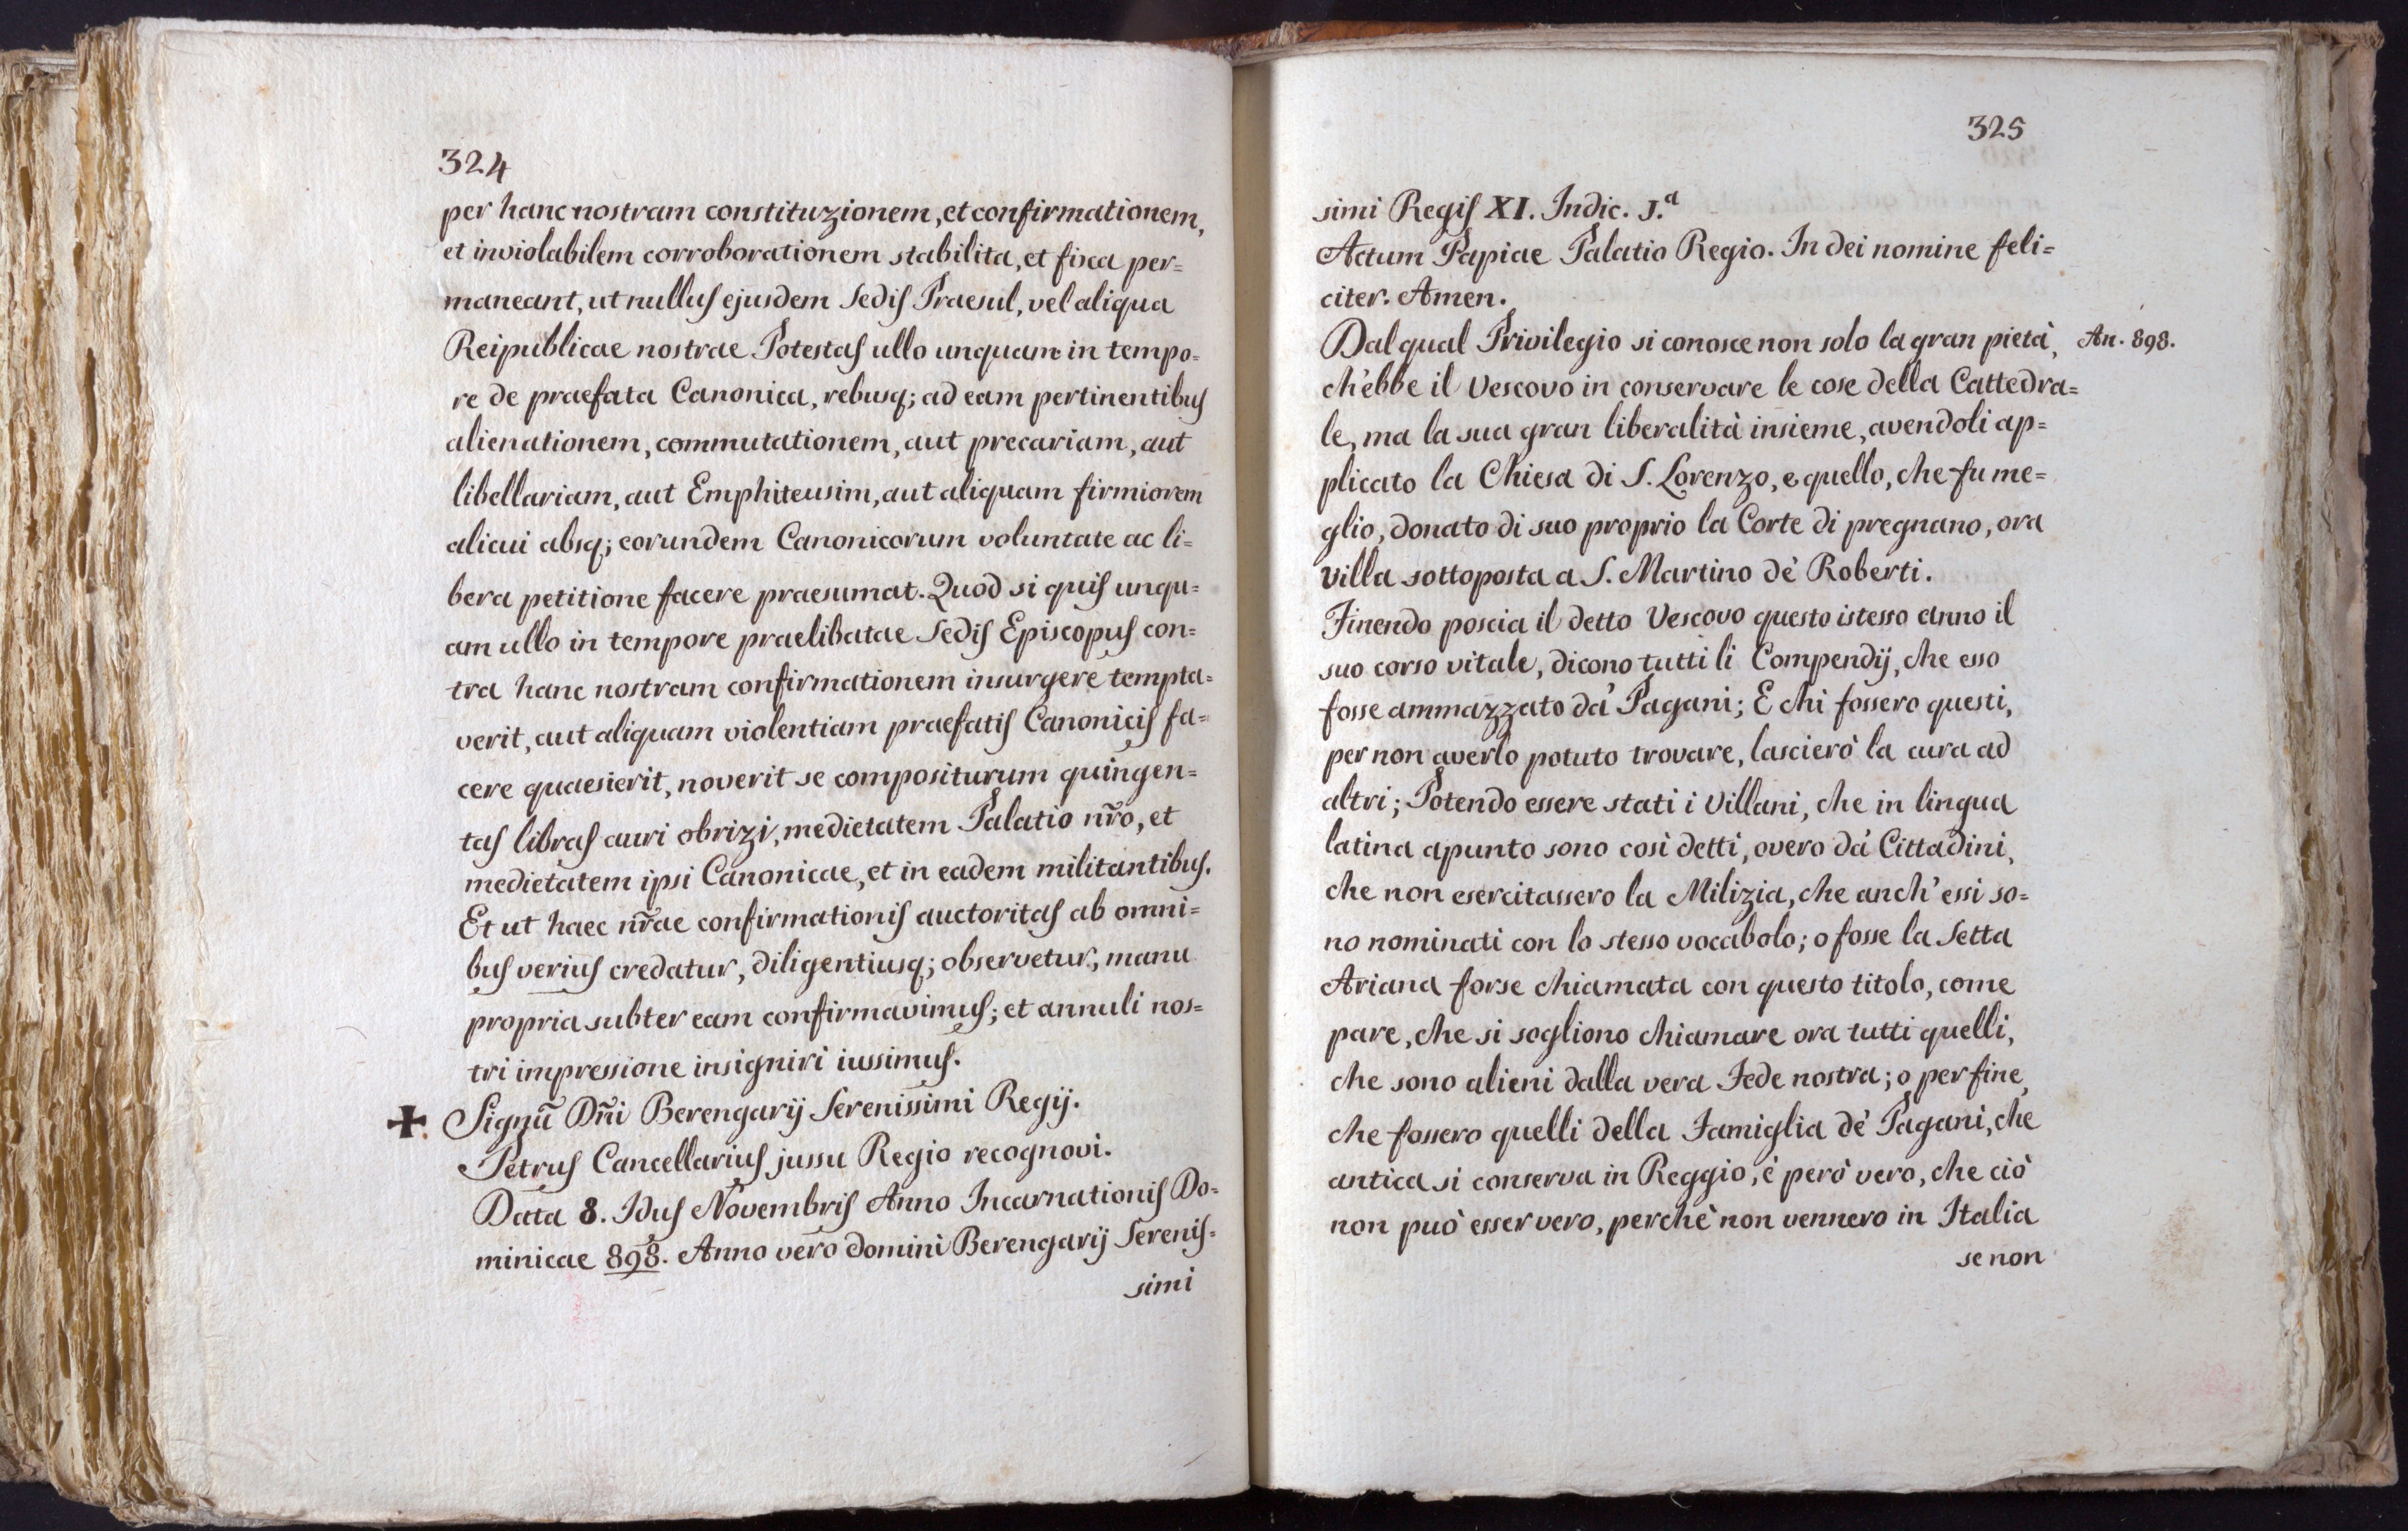 324
per hanc nostram constituzionem, et confirmationem,
et inviolabilem corroborationem stabilita, et fixa per=
maneant, ut nullus ejusdem Sedis Praesul, vel aliqua
Reipublicae nostrae Potestas ullo unquam in tempo=
re de praefata Canonica, rebusq; ad eam pertinentibus
alienationem, commutationem, aut precariam, aut
libellariam, aut Emphiteusim, aut aliquam firmiorem
alicui absq; eorundem Canonicorum voluntate ac li=
bera petitione facere praesumat. Quod si quis unqu=
am ullo in tempore praelibatae Sedis Episcopus con=
tra hanc nostram confirmationem insurgere tempta=
verit, aut aliquam violentiam praefatis Canonicis fa=
cere quaesierit, noverit se compositurum quingen=
tas libras auri obrizi, medietatem Palatio nr̃o, et
medietatem ipsi Canonicae, et in eadem militantibus.
Et ut haec nr̃ae confirmationis auctoritas ab omni=
bus verius credatur, diligentiusq; observetur, manu
propria subter eam confirmavimus; et annuli nos=
tri impressione insigniri iussimus.
✠ Signũ Dñi Berengarij Serenissimi Regij.
Petrus Cancellarius jussu Regio recognovi.
Data 8. Idus Novembris Anno Incarnationis Do=
minicae 898. Anno vero domini Berengarij Serenis=
simi
325
simi Regis XI. Indic. J.a
Actum Papiae Palatio Regio. In dei nomine feli=
citer. Amen.
Dal qual Privilegio si conosce non solo la gran pietà, An. 898.
ch'ebbe il Vescovo in conservare le cose della Cattedra=
le, ma la sua gran liberalità insieme, avendoli ap=
plicato la Chiesa di S. Lorenzo, e quello, che fu me=
glio, donato di suo proprio la Corte di pregnano, ora
villa sottoposta a S. Martino de' Roberti.
Finendo poscia il detto Vescovo questo istesso anno il
suo corso vitale, dicono tutti li Compendij, che esso
fosse ammazzato da' Pagani; E chi fossero questi,
per non averlo potuto trovare, lascierò la cura ad
altri; Potendo essere stati i Villani, che in lingua
latina apunto sono così detti, overo da' Cittadini,
che non esercitassero la Milizia, che anch' essi so=
no nominati con lo stesso vocabolo; o fosse la Setta
Ariana forse chiamata con questo titolo, come
pare, che si sogliono chiamare ora tutti quelli,
che sono alieni dalla vera Fede nostra; o per fine,
che fossero quelli della Famiglia de' Pagani, che
antica si conserva in Reggio, è però vero, che ciò
non può esser vero, perchè non vennero in Italia
se non